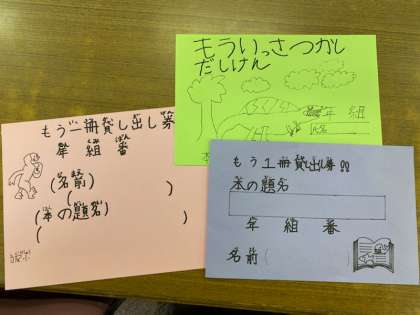 もういっさつかし
だしけん
年 組
氏名
もう一冊貸し出し券
年 組 番
(名前)
( )
(本の題名)
( )
もう1冊貸出し券
本の題名
年 組 番
名前( )